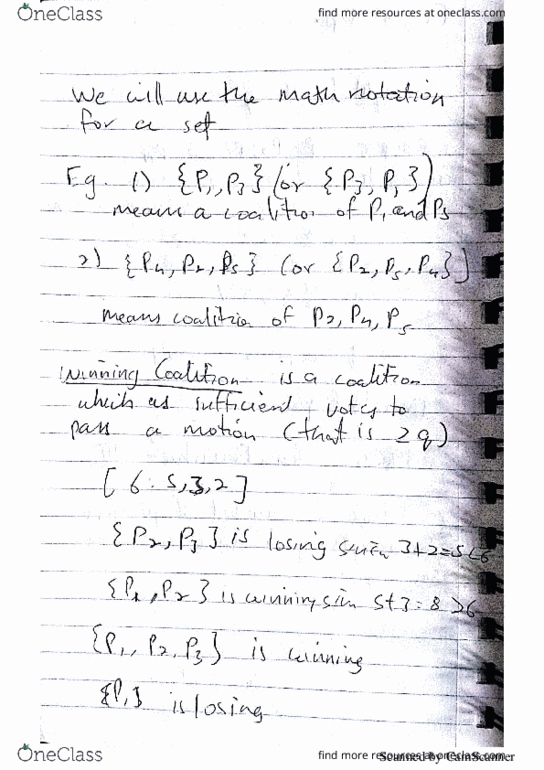 OneClass
find more resources at oneclass.com
We will use the math notation
for a set
Eg. 1) {P1, P3} (or {P3, P1})
means a coalition of P1 and P3
2) {P4, P2, P5} (or {P2, P5, P4})
means coalition of P2, P4, P5
Winning Coalition is a coalition
which as sufficient votes to
pass a motion (that is ≥ q)
[6: 5,3,2]
{P2, P3} is losing since 3+2=5<6
{P1, P2} is winning sin 5+3=8>6
{P1, P2, P3} is winning
{P1} is losing
OneClass
find more resources at oneclass.com
Scanned by CamScanner